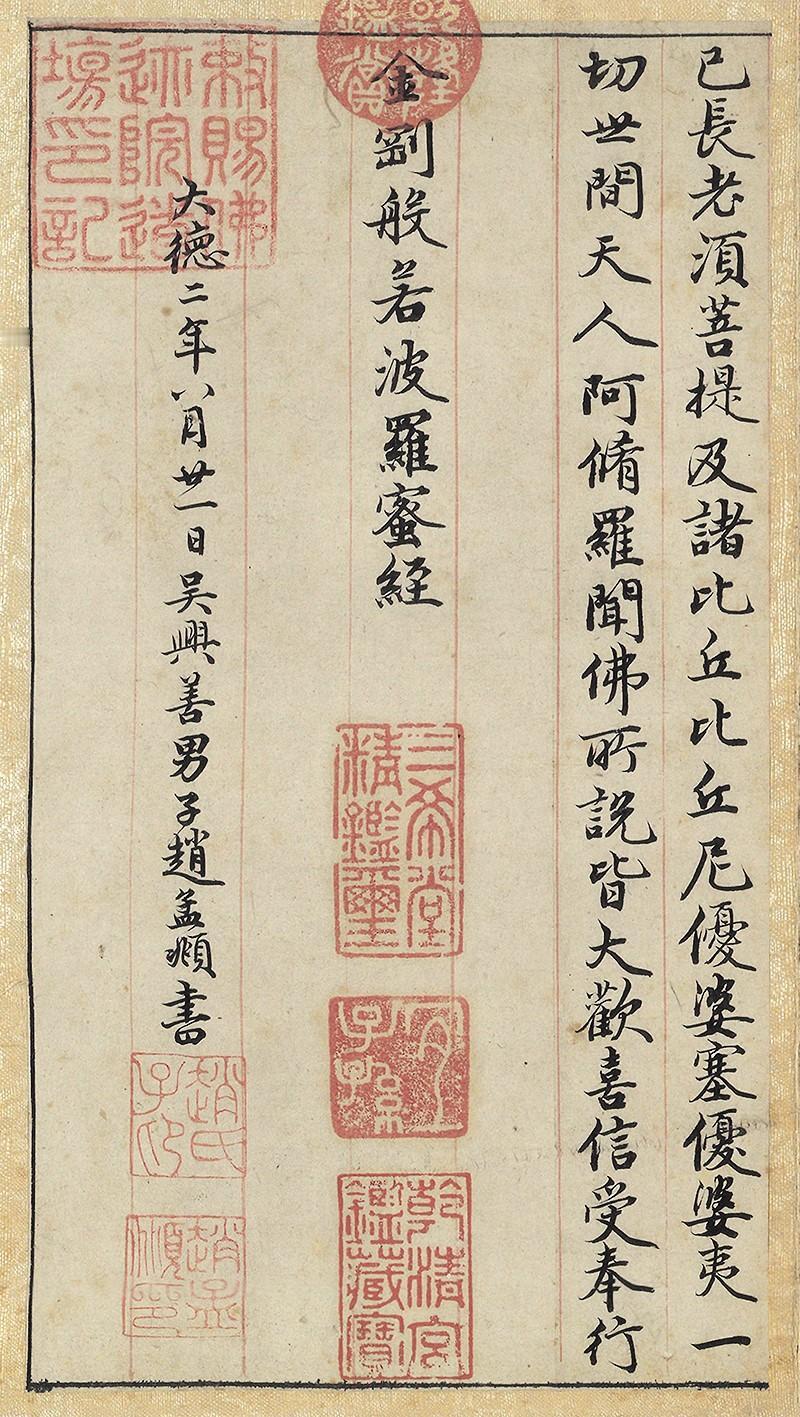 已長老須菩提及諸比丘比丘尼優婆塞優婆夷一
切世間天人阿脩羅聞佛所說皆大歡喜信受奉行
乾隆鑑賞
金剛般若波羅蜜經
三希堂精鑑璽
宜子孫
乾清宮鑑藏寶
敕賜佛迹院造塲印記
大德二年八月廿一日吳興善男子趙孟頫書
趙氏子印
趙孟頫印